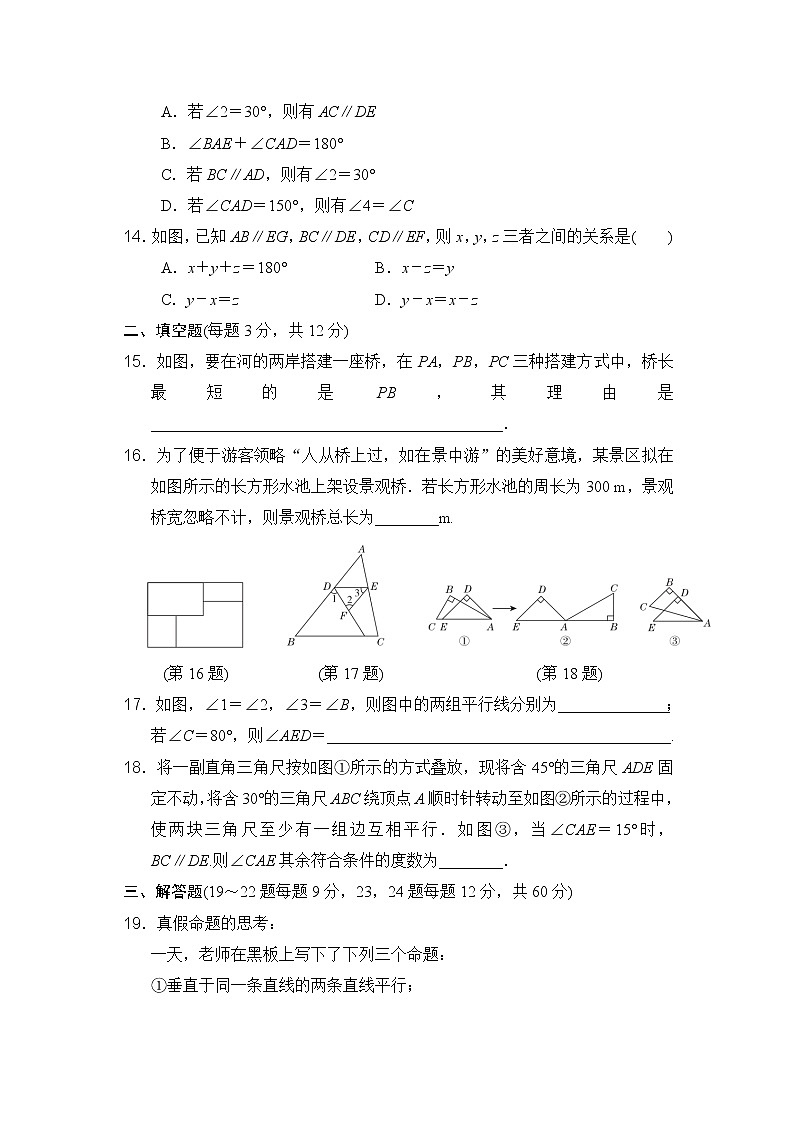 A．若∠2＝30°，则有AC∥DE
B．∠BAE＋∠CAD＝180°
C．若BC∥AD，则有∠2＝30°
D．若∠CAD＝150°，则有∠4＝∠C
14．如图，已知AB∥EG，BC∥DE，CD∥EF，则x，y，z三者之间的关系是(　　)
A．x＋y＋z＝180°　B．x－z＝y
C．y－x＝z　D．y－x＝x－z
二、填空题(每题3分，共12分)
15．如图，要在河的两岸搭建一座桥，在PA，PB，PC三种搭建方式中，桥长
最短的是PB，其理由是
____________________________________________．
16．为了便于游客领略“人从桥上过，如在景中游”的美好意境，某景区拟在
如图所示的长方形水池上架设景观桥．若长方形水池的周长为300 m，景观
桥宽忽略不计，则景观桥总长为________m.
A
D E
1 2 3
F
B C
B D
C E A
①
D C
E A B
②
B
D
C
E A
③
(第16题)　(第17题)　(第18题)
17．如图，∠1＝∠2，∠3＝∠B，则图中的两组平行线分别为______________；
若∠C＝80°，则∠AED＝___________________________________________.
18．将一副直角三角尺按如图①所示的方式叠放，现将含45°的三角尺ADE固
定不动，将含30°的三角尺ABC绕顶点A顺时针转动至如图②所示的过程中，
使两块三角尺至少有一组边互相平行．如图③，当∠CAE＝15°时，
BC∥DE.则∠CAE其余符合条件的度数为________．
三、解答题(19～22题每题9分，23，24题每题12分，共60分)
19．真假命题的思考：
一天，老师在黑板上写下了下列三个命题：
①垂直于同一条直线的两条直线平行；